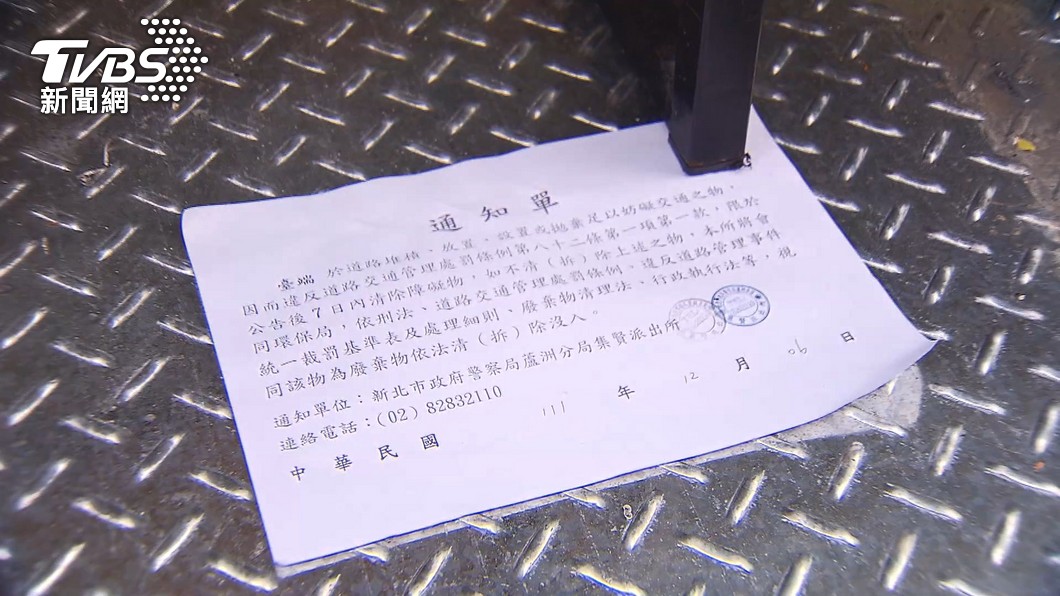 TVBS
新聞網
通知單
臺端 於道路堆積、放置、設置或拋棄足以妨礙交通之物，
因而違反道路交通管理處罰條例第八十二條第一項第一款，限於
公告後7日內清除障礙物，如不清（拆）除上述之物，本所將會
同環保局，依刑法、道路交通管理處罰條例、違反道路管理事件
統一裁罰基準表及處理細則、廢棄物清理法、行政執行法等，視
同該物為廢棄物依法清（拆）除沒入。
通知單位：新北市政府警察局蘆洲分局集賢派出所
連絡電話：(02) 82832110
中華民國 111 年 12 月 06 日